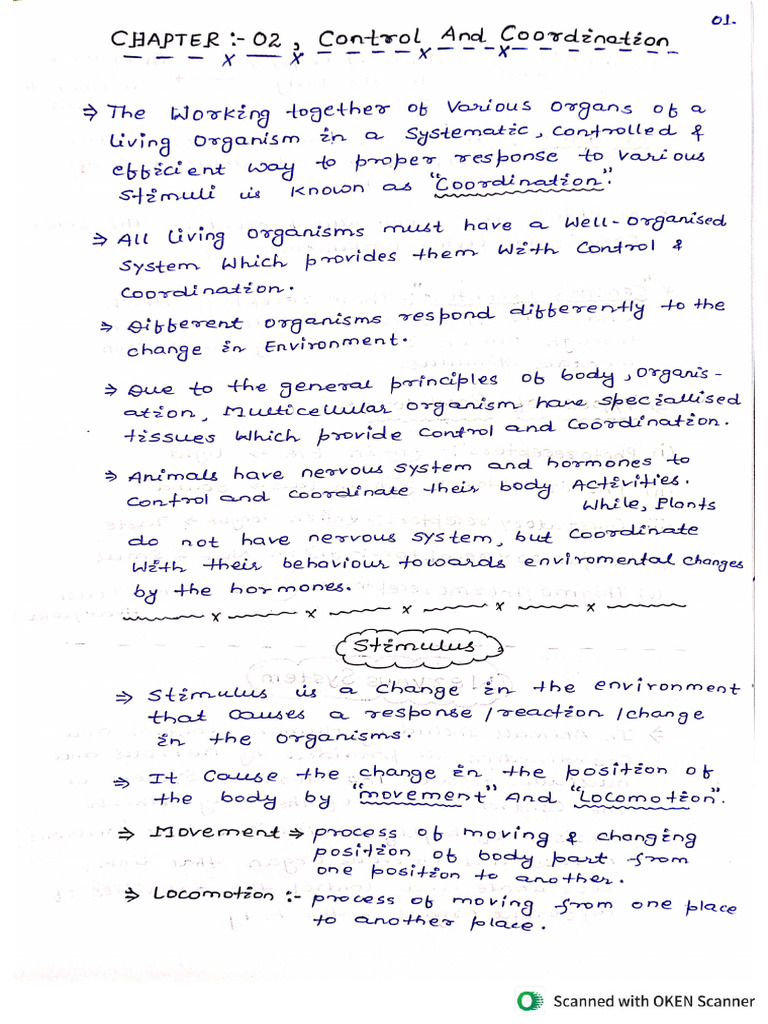 01.
CHAPTER :- 02, Control And Coordination
⇒ The Working together of Various Organs of a
living organism in a Systematic, controlled &
efficient way to proper response to various
Stimuli is known as "Coordination".
⇒ All living organisms must have a Well-organised
System Which provides them With Control &
Coordination.
⇒ Different organisms respond differently to the
change in Environment.
⇒ Due to the general principles of body, Organis-
ation, Multicellular organism have speciallised
tissues Which provide Control and Coordination.
⇒ Animals have nervous system and hormones to
Control and Coordinate their body Activities.
While, Plants
do not have nervous System, but Coordinate
With their behaviour towards enviromental changes
by the hormones.
Stimulus
⇒ Stimulus is a change in the environment
that causes a response /reaction /change
in the organisms.
⇒ It Cause the change in the position of
the body by "movement" And "Locomotion".
⇒ Movement ⇒ process of moving & changing
position of body part from
one position to another.
⇒ Locomotion :- process of moving from one place
to another place.
Scanned with OKEN Scanner